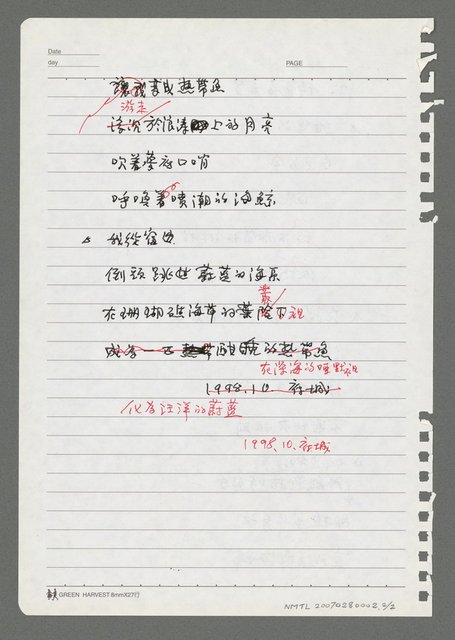 Date
day
PAGE
讓我變成熱帶魚
游走
浮沉於浪濤上的月亮
吹著夢府口哨
呼喚著噴潮的海鯨
我從窗邊
倒頭跳進蔚藍的海原
叢
在珊瑚礁海草的葉隙下裡
成為一尾酣睡的熱帶魚
在深海的睡默裡
1998.10. 府城
化為汪洋的蔚藍
1998.10. 府城
GREEN HARVEST 8mmX27行
NMTL 20070280002.2/2